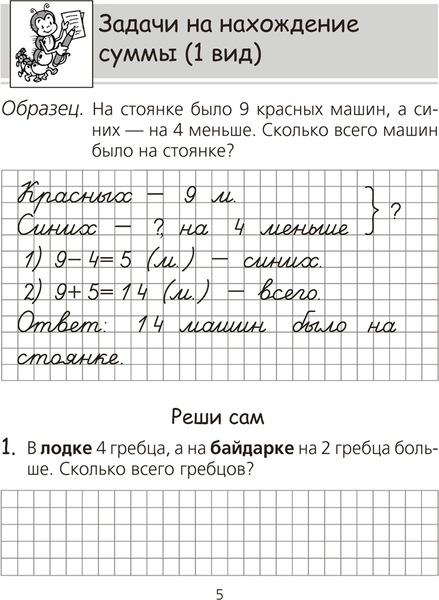 Задачи на нахождение
суммы (1 вид)
Образец. На стоянке было 9 красных машин, а си-
них — на 4 меньше. Сколько всего машин
было на стоянке?
Красных — 9 м.
Синих — ?, на 4 меньше } ?
1) 9–4=5 (м.) — синих.
2) 9+5=14 (м.) — всего.
Ответ: 14 машин было на
стоянке.
Реши сам
1. В лодке 4 гребца, а на байдарке на 2 гребца боль-
ше. Сколько всего гребцов?
5